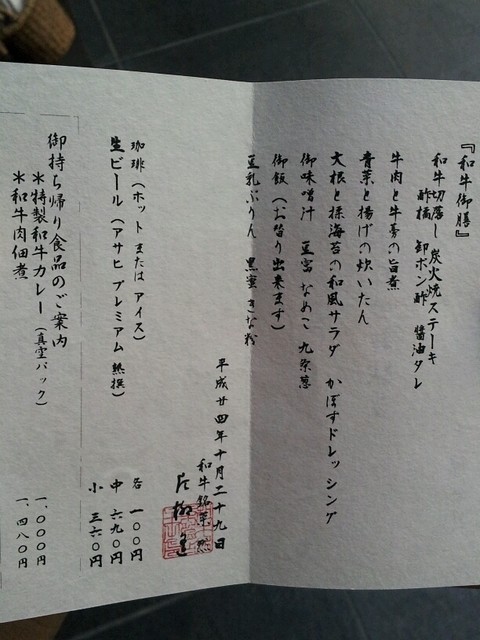 『和牛御膳』
和牛切落し 炭火焼ステーキ
酢橘 卸ポン酢 醤油タレ
牛肉と牛蒡の旨煮
青菜と揚げの炊いたん
大根と揉海苔の和風サラダ かぼすドレッシング
御味噌汁 豆富 なめこ 九条葱
御飯（お替り出来ます）
豆乳ぷりん 黒蜜 きな粉
平成廿四年十月二十九日
和牛銘菜
珈琲（ホット または アイス） 各 一〇〇円
生ビール（アサヒ プレミアム 熟撰） 中 六九〇円
小 三六〇円
御持ち帰り食品のご案内
＊特製和牛カレー（真空パック） 一、〇〇〇円
＊和牛肉佃煮 一、四八〇円